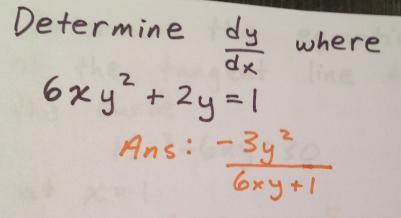 Determine dy/dx where
6xy² + 2y = 1
Ans: -3y²/(6xy+1)